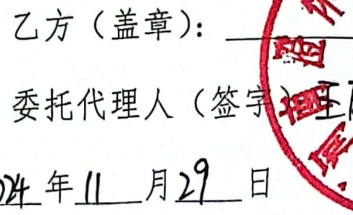 乙方（盖章）：
委托代理人（签字）王
024年11月29日